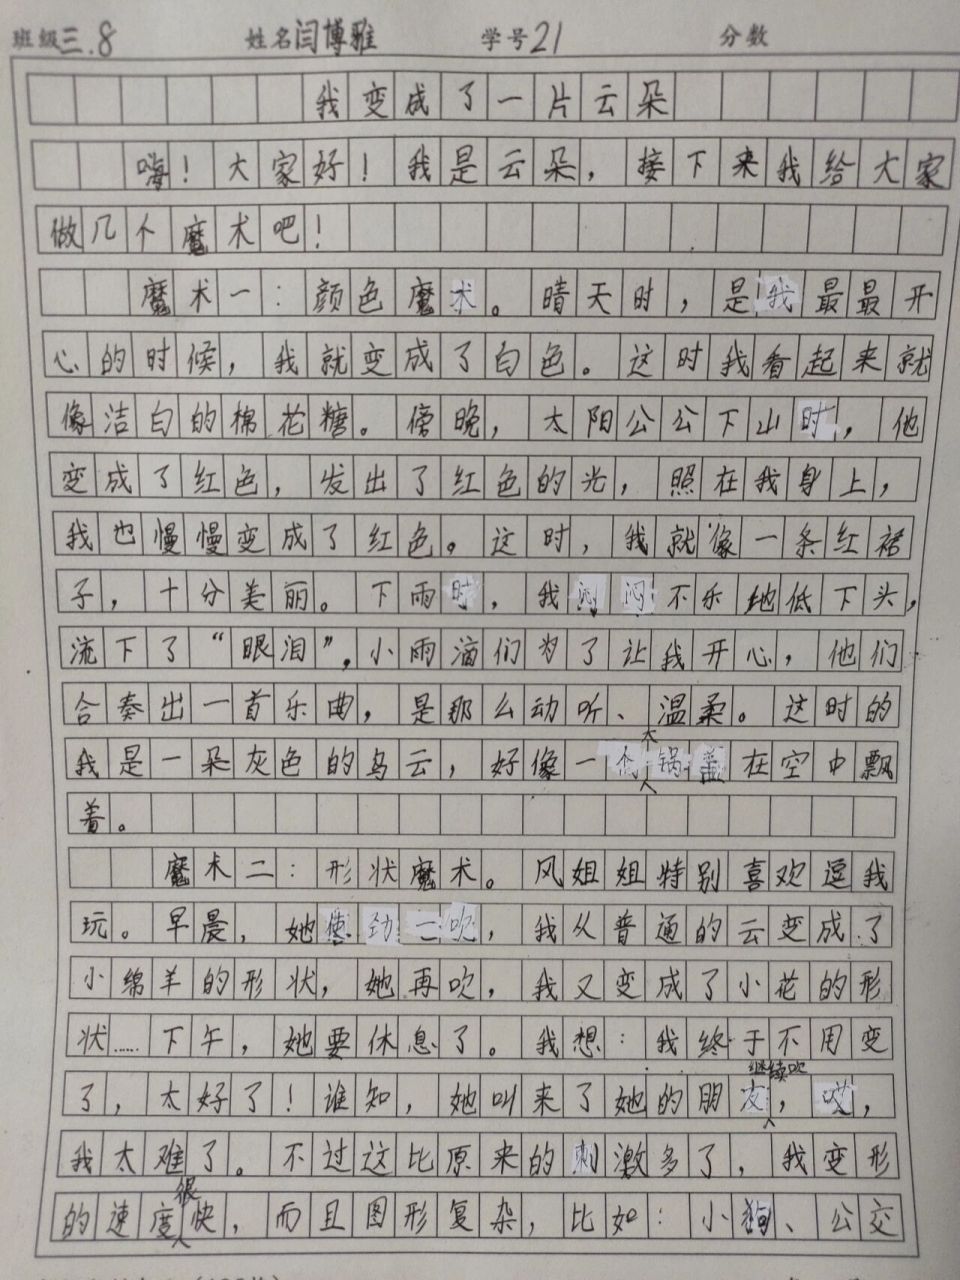 班级三.8 姓名闫博雅 学号21 分数
我变成了一片云朵
嗨！大家好！我是云朵，接下来我给大家
做几个魔术吧！
魔术一：颜色魔术。晴天时，是我最最开
心的时候，我就变成了白色。这时我看起来就
像洁白的棉花糖。傍晚，太阳公公下山时，他
变成了红色，发出了红色的光，照在我身上，
我也慢慢变成了红色。这时，我就像一条红裙
子，十分美丽。下雨时，我闷闷不乐地低下头，
流下了“眼泪”，小雨滴们为了让我开心，他们
合奏出一首乐曲，是那么动听、温柔。这时的
我是一朵灰色的乌云，好像一个大锅盖在空中飘
着。
魔术二：形状魔术。风姐姐特别喜欢逗我
玩。早晨，她使劲一吹，我从普通的云变成了
小绵羊的形状，她再吹，我又变成了小花的形
状……下午，她要休息了。我想：我终于不用变
了，太好了！谁知，她叫来了她的朋友继续吹，哎，
我太难了。不过这比原来的刺激多了，我变形
的速度很快，而且图形复杂，比如：小狗、公交